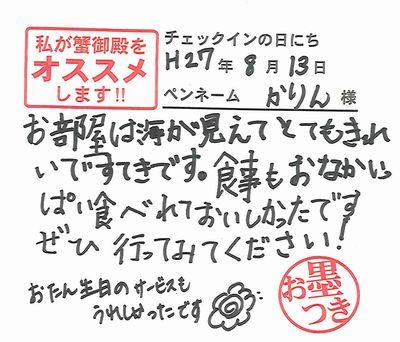 私が蟹御殿を
オススメ
します!!
チェックインの日にち
H27年8月13日
ペンネーム かりん 様
お部屋は海が見えてとてもきれ
いですてきです。食事もおなかいっ
ぱい食べれておいしかったです
ぜひ行ってみてください!
おたん生日のサービスも
うれしかったです
お墨
つき